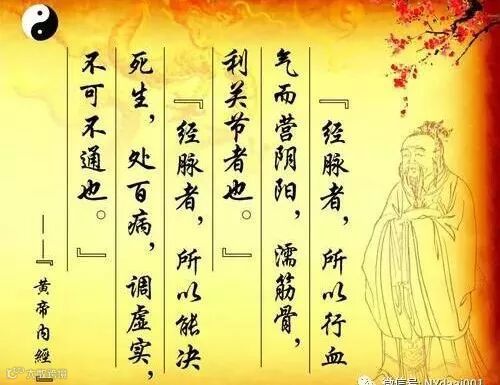 『经脉者，所以行血
气而营阴阳，濡筋骨，
利关节者也。』
『经脉者，所以能决
死生，处百病，调虚实，
不可不通也。』
——『黄帝内經』
微信号: